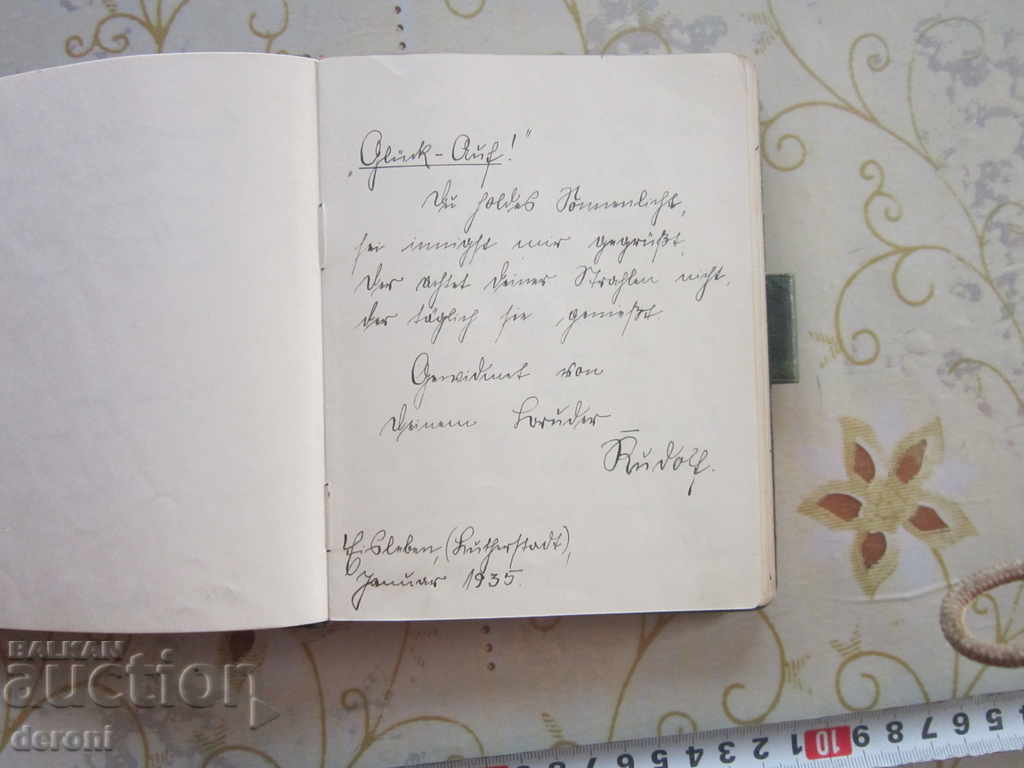 „Glück-Auf!"
Du holdes Sonnenlicht,
sei innigst mir gegrüßt,
Der achtet deiner Strahlen nicht,
der täglich sie genießt.
Gewidmet von
Deinem Bruder
Rudolf.
Eisleben, (Lutherstadt),
Januar 1935.
BALKAN
auction
deroni
10 9 8 7 6 5